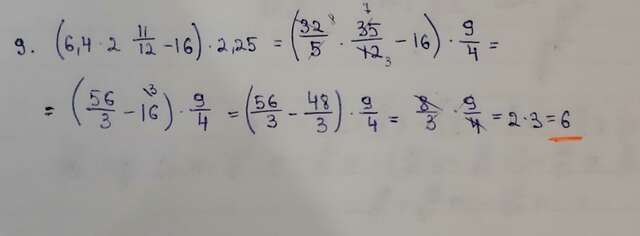 9. (6,4 · 2 11/12 - 16) · 2,25 = (32/5 8 · 7 35/12 3 - 16) · 9/4 =
= (56/3 - 16 3) · 9/4 = (56/3 - 48/3) · 9/4 = 8/3 · 9/4 = 2 · 3 = 6